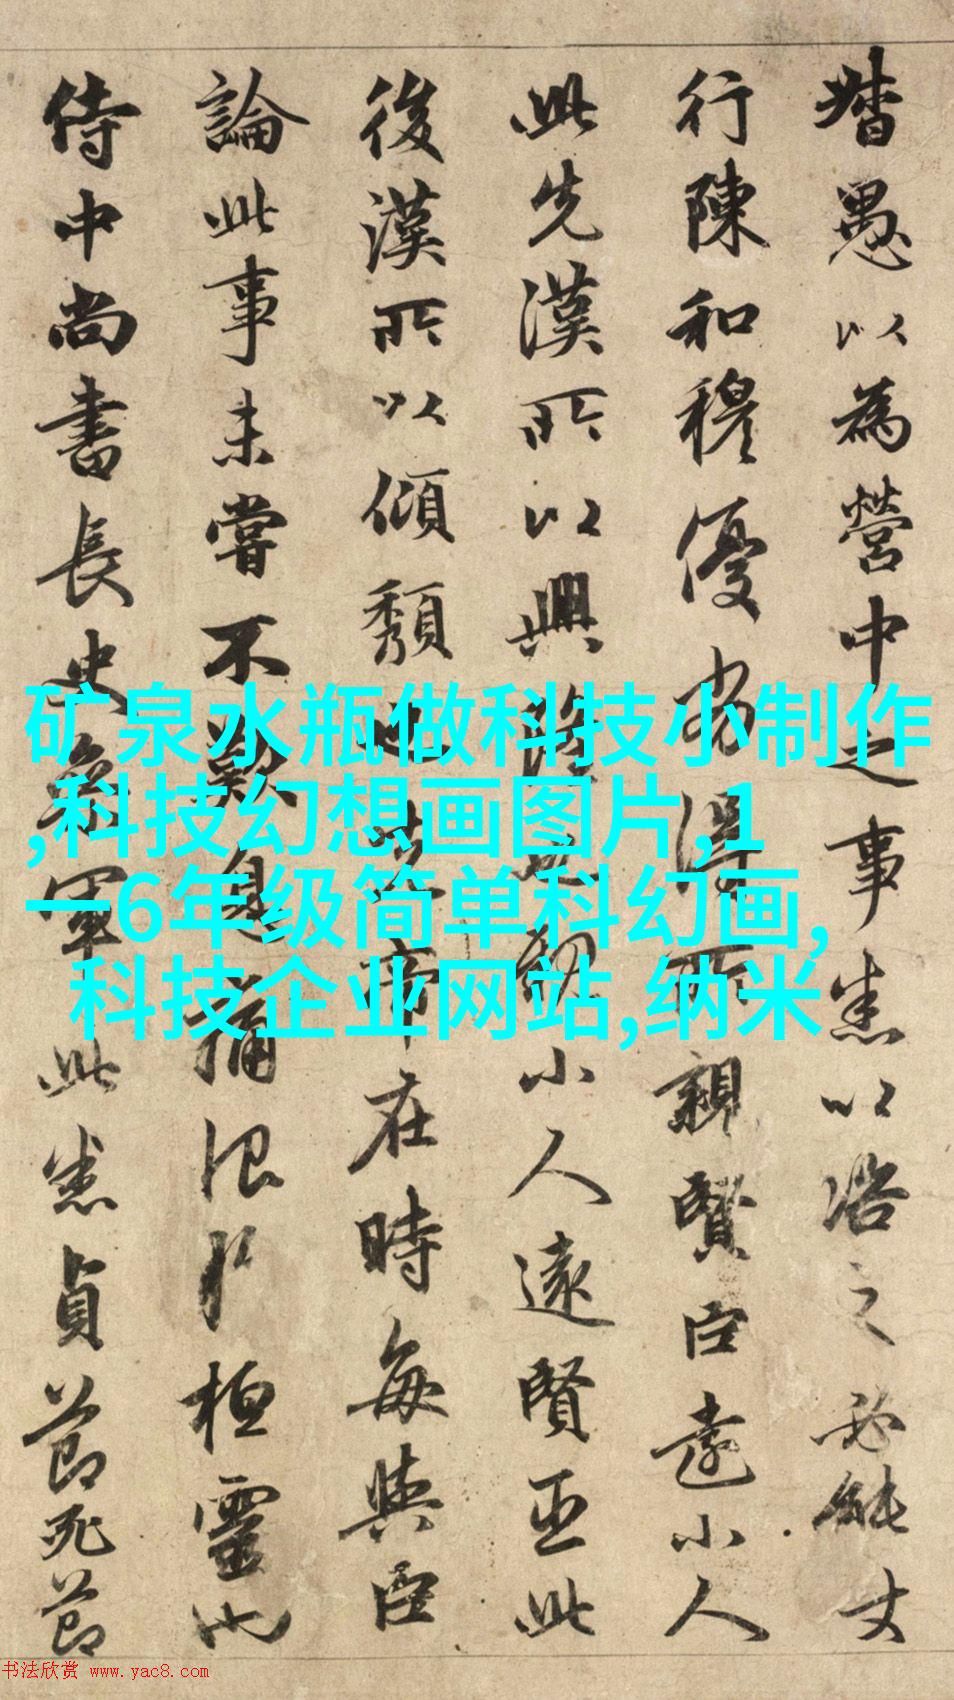 督愚以為營中之事悉以諮之必能使
行陳和穆優劣得所親賢臣遠小人
此先漢所以興隆也親小人遠賢臣此
後漢所以傾頹也先帝在時每與臣
論此事未嘗不歎息痛恨於桓靈也
侍中尚書長史參軍此悉貞節死節
矿泉水瓶做科技小制作
,科技幻想画图片,1
一6年级简单科幻画,
科技企业网站,纳米
书法欣赏 www.yac8.com